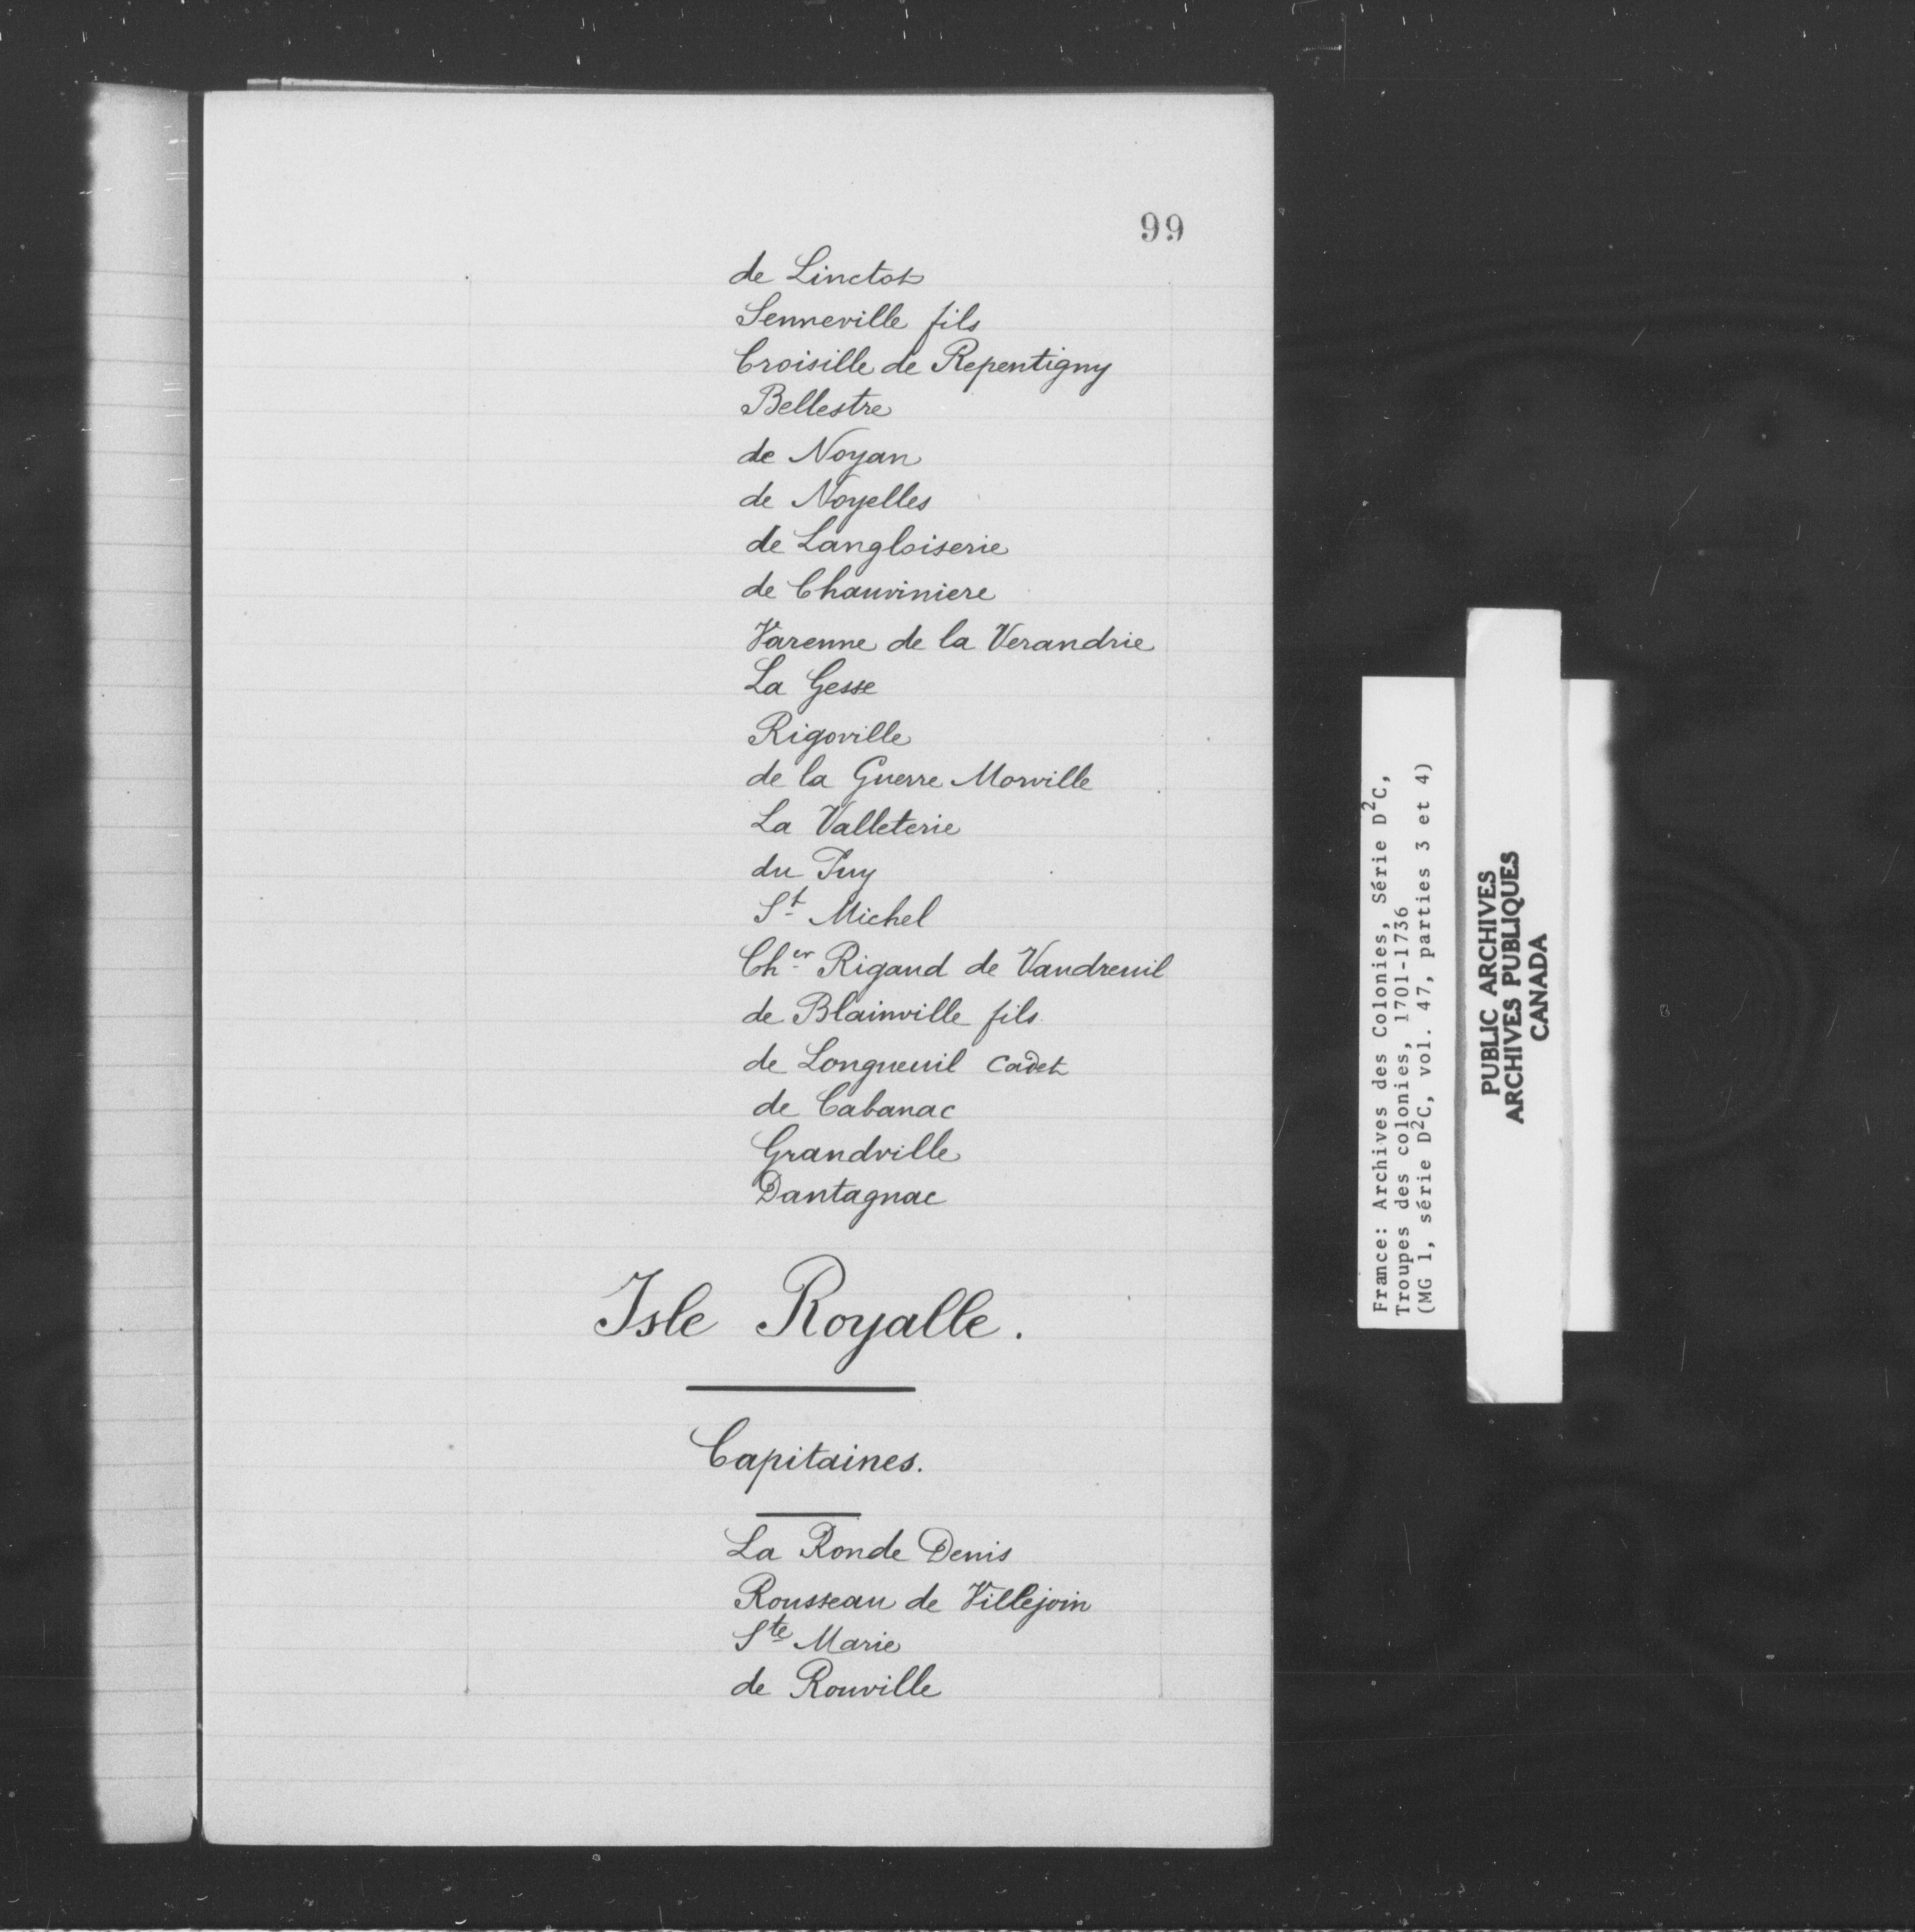 99
de Linctot
Senneville fils
Croisille de Repentigny
Bellestre
de Noyan
de Noyelles
de Langloiserie
de Chauviniere
Varenne de la Verandrie
La Gesse
Rigoville
de la Guerre Morville
La Valleterie
du Puy
St Michel
Cher Rigaud de Vaudreuil
de Blainville fils
de Longueuil Cadet
de Cabanac
Grandville
Dantagnac
Isle Royalle.
Capitaines.
La Ronde Denis
Rousseau de Villejoin
Ste Marie
de Rouville
France: Archives des Colonies, Série D²C,
Troupes des colonies, 1701-1736
(MG 1, série D²C, vol. 47, parties 3 et 4)
PUBLIC ARCHIVES
ARCHIVES PUBLIQUES
CANADA